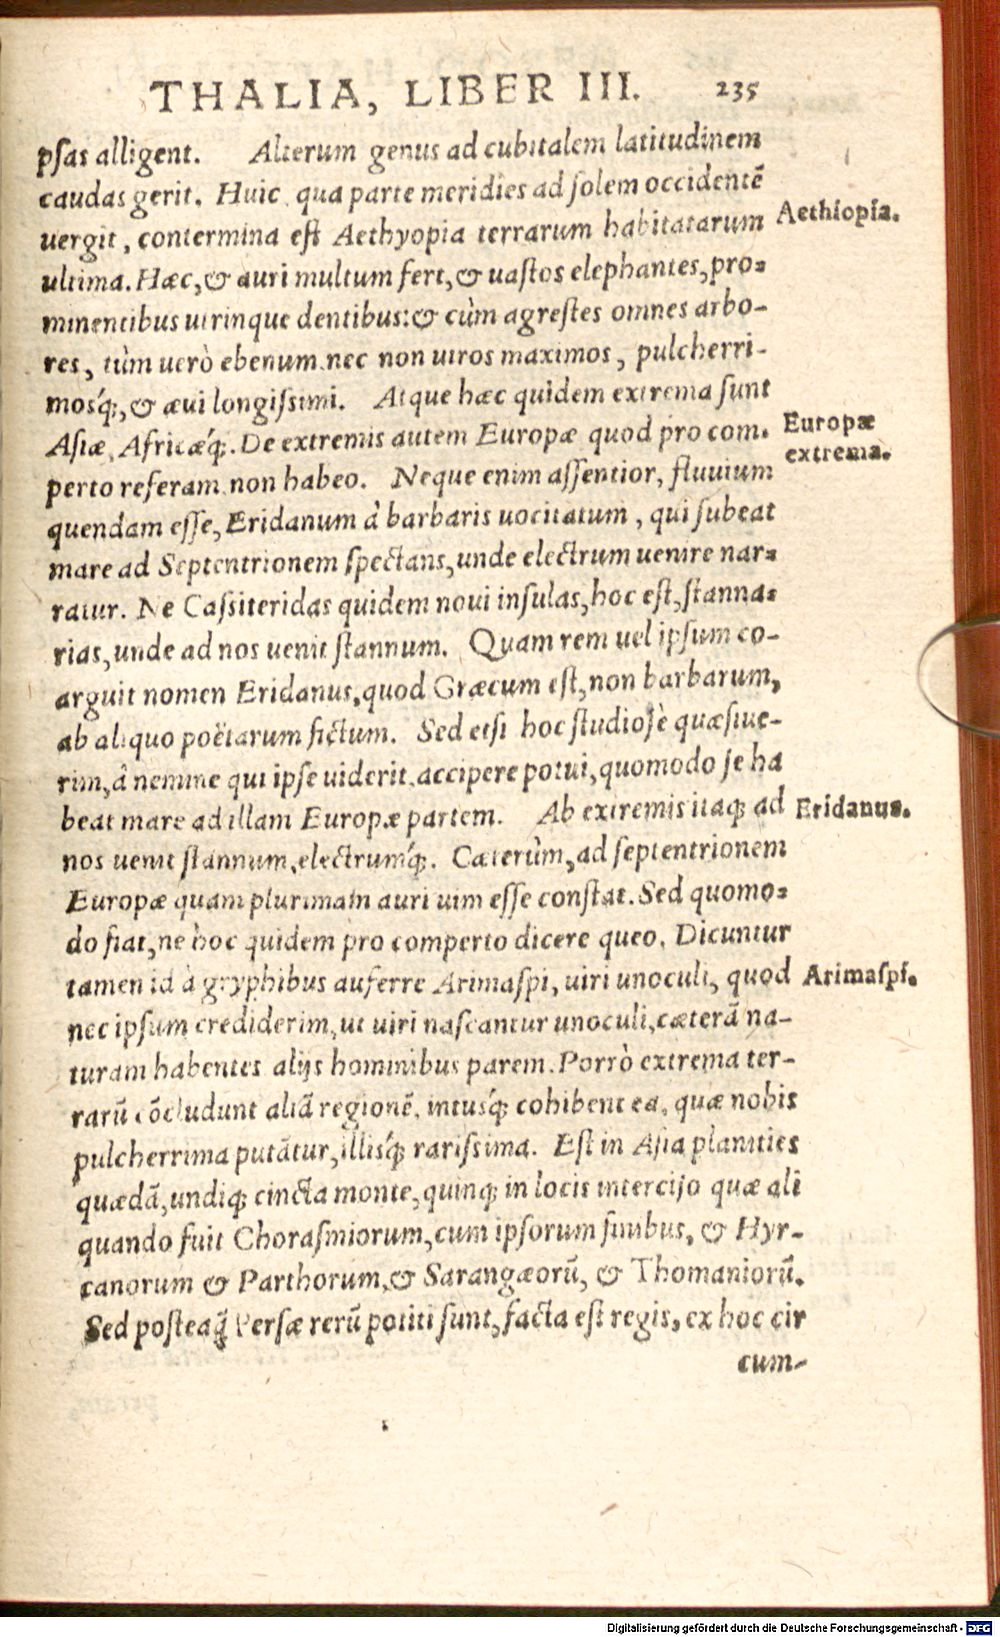 THALIA, LIBER III. 235
psas alligent. Alterum genus ad cubitalem latitudinem
caudas gerit. Huic qua parte meridies ad solem occidentē
uergit, contermina est Aethyopia terrarum habitatarum
Aethiopia.
ultima. Hæc, & auri multum fert, & uastos elephantes, pro-
minentibus utrinque dentibus: & cùm agrestes omnes arbo-
res, tùm uerò ebenum. nec non uiros maximos, pulcherri-
mosq́;, & æui longissimi. Atque hæc quidem extrema sunt
Asiæ, Africæq́;. De extremis autem Europæ quod pro com-
Europæ
extrema.
perto referam non habeo. Neque enim assentior, fluuium
quendam esse, Eridanum à barbaris uocitatum, qui subeat
mare ad Septentrionem spectans, unde electrum uenire nar-
ratur. Ne Cassiteridas quidem noui insulas, hoc est, stanna-
rias, unde ad nos uenit stannum. Quam rem uel ipsum co-
arguit nomen Eridanus, quod Græcum est, non barbarum,
ab aliquo poëtarum fictum. Sed etsi hoc studiosè quæsiue-
rim, à nemine qui ipse uiderit accipere potui, quomodo se ha
beat mare ad illam Europæ partem. Ab extremis itaq; ad
Eridanus.
nos uenit stannum, electrumq́;. Cæterùm, ad septentrionem
Europæ quam plurimam auri uim esse constat. Sed quomo-
do fiat, ne hoc quidem pro comperto dicere queo. Dicuntur
tamen id à gryphibus auferre Arimaspi, uiri unoculi, quod
Arimaspi.
nec ipsum crediderim, ut uiri nascantur unoculi, cæterā na-
turam habentes alijs hominibus parem. Porrò extrema ter-
rarū cōcludunt aliā regionē, intusq́; cohibent ea, quæ nobis
pulcherrima putātur, illisq́; rarissima. Est in Asia planities
quædā, undiq; cincta monte, quinq; in locis interciso quæ ali
quando fuit Chorasmiorum, cum ipsorum finibus, & Hyr-
canorum & Parthorum, & Sarangæorū, & Thomaniorū.
Sed posteaq̃ Persæ rerū potiti sunt, facta est regis, ex hoc cir
cum-
Digitalisierung gefördert durch die Deutsche Forschungsgemeinschaft - DFG